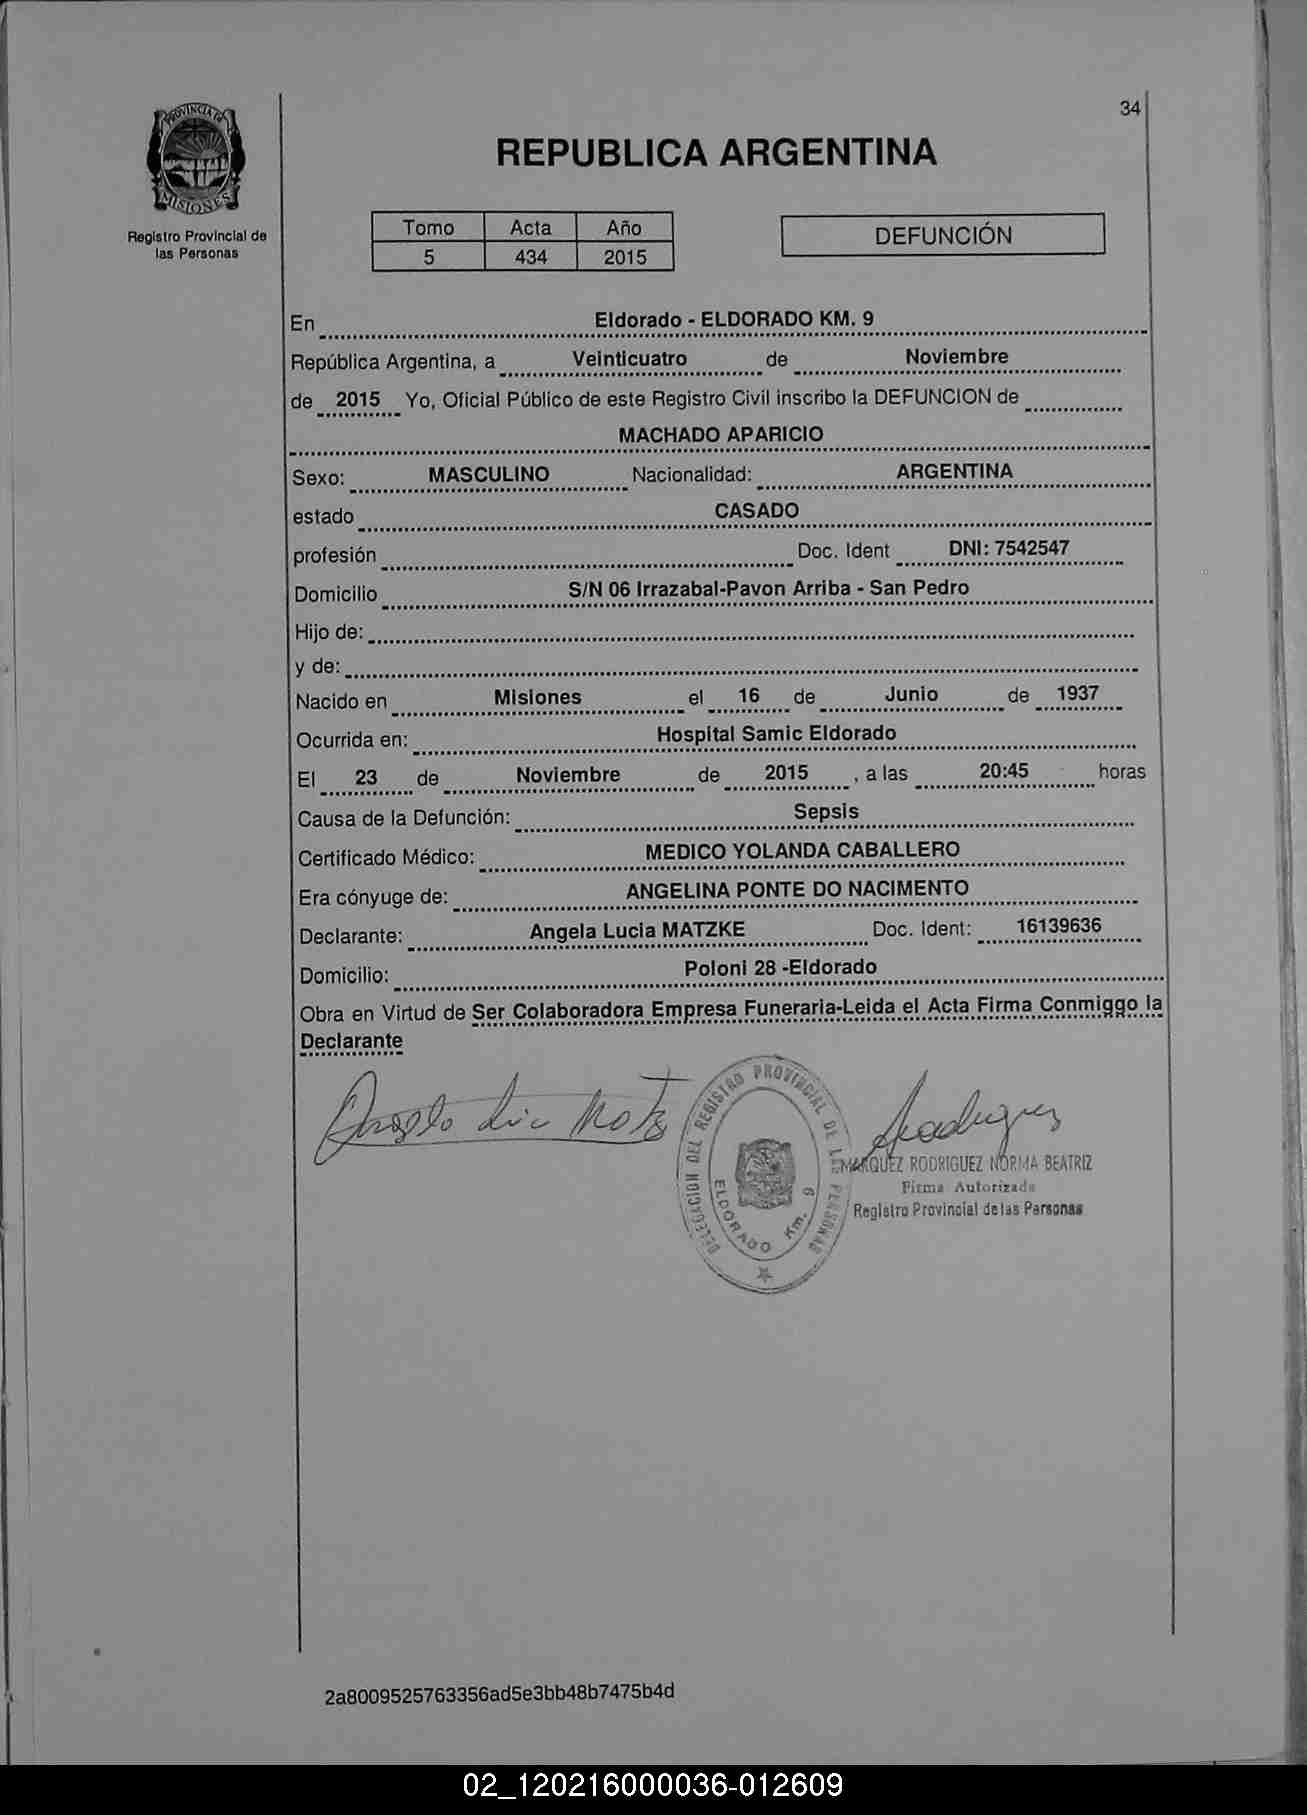 34
PROVINCIA DE
MISIONES
Registro Provincial de
las Personas
REPUBLICA ARGENTINA
Tomo Acta Año
5 434 2015
DEFUNCIÓN
En Eldorado - ELDORADO KM. 9
República Argentina, a Veinticuatro de Noviembre
de 2015 Yo, Oficial Público de este Registro Civil inscribo la DEFUNCION de
MACHADO APARICIO
Sexo: MASCULINO Nacionalidad: ARGENTINA
estado CASADO
profesión Doc. Ident DNI: 7542547
Domicilio S/N 06 Irrazabal-Pavon Arriba - San Pedro
Hijo de:
y de:
Nacido en Misiones el 16 de Junio de 1937
Ocurrida en: Hospital Samic Eldorado
El 23 de Noviembre de 2015 , a las 20:45 horas
Causa de la Defunción: Sepsis
Certificado Médico: MEDICO YOLANDA CABALLERO
Era cónyuge de: ANGELINA PONTE DO NACIMENTO
Declarante: Angela Lucia MATZKE Doc. Ident: 16139636
Domicilio: Poloni 28 -Eldorado
Obra en Virtud de Ser Colaboradora Empresa Funeraria-Leida el Acta Firma Conmiggo la
Declarante
DELEGACION DEL REGISTRO PROVINCIAL DE LAS PERSONAS
ELDORADO Km. 9
MARQUEZ RODRIGUEZ NORMA BEATRIZ
Firma Autorizada
Registro Provincial de las Personas
2a8009525763356ad5e3bb48b7475b4d
02_120216000036-012609